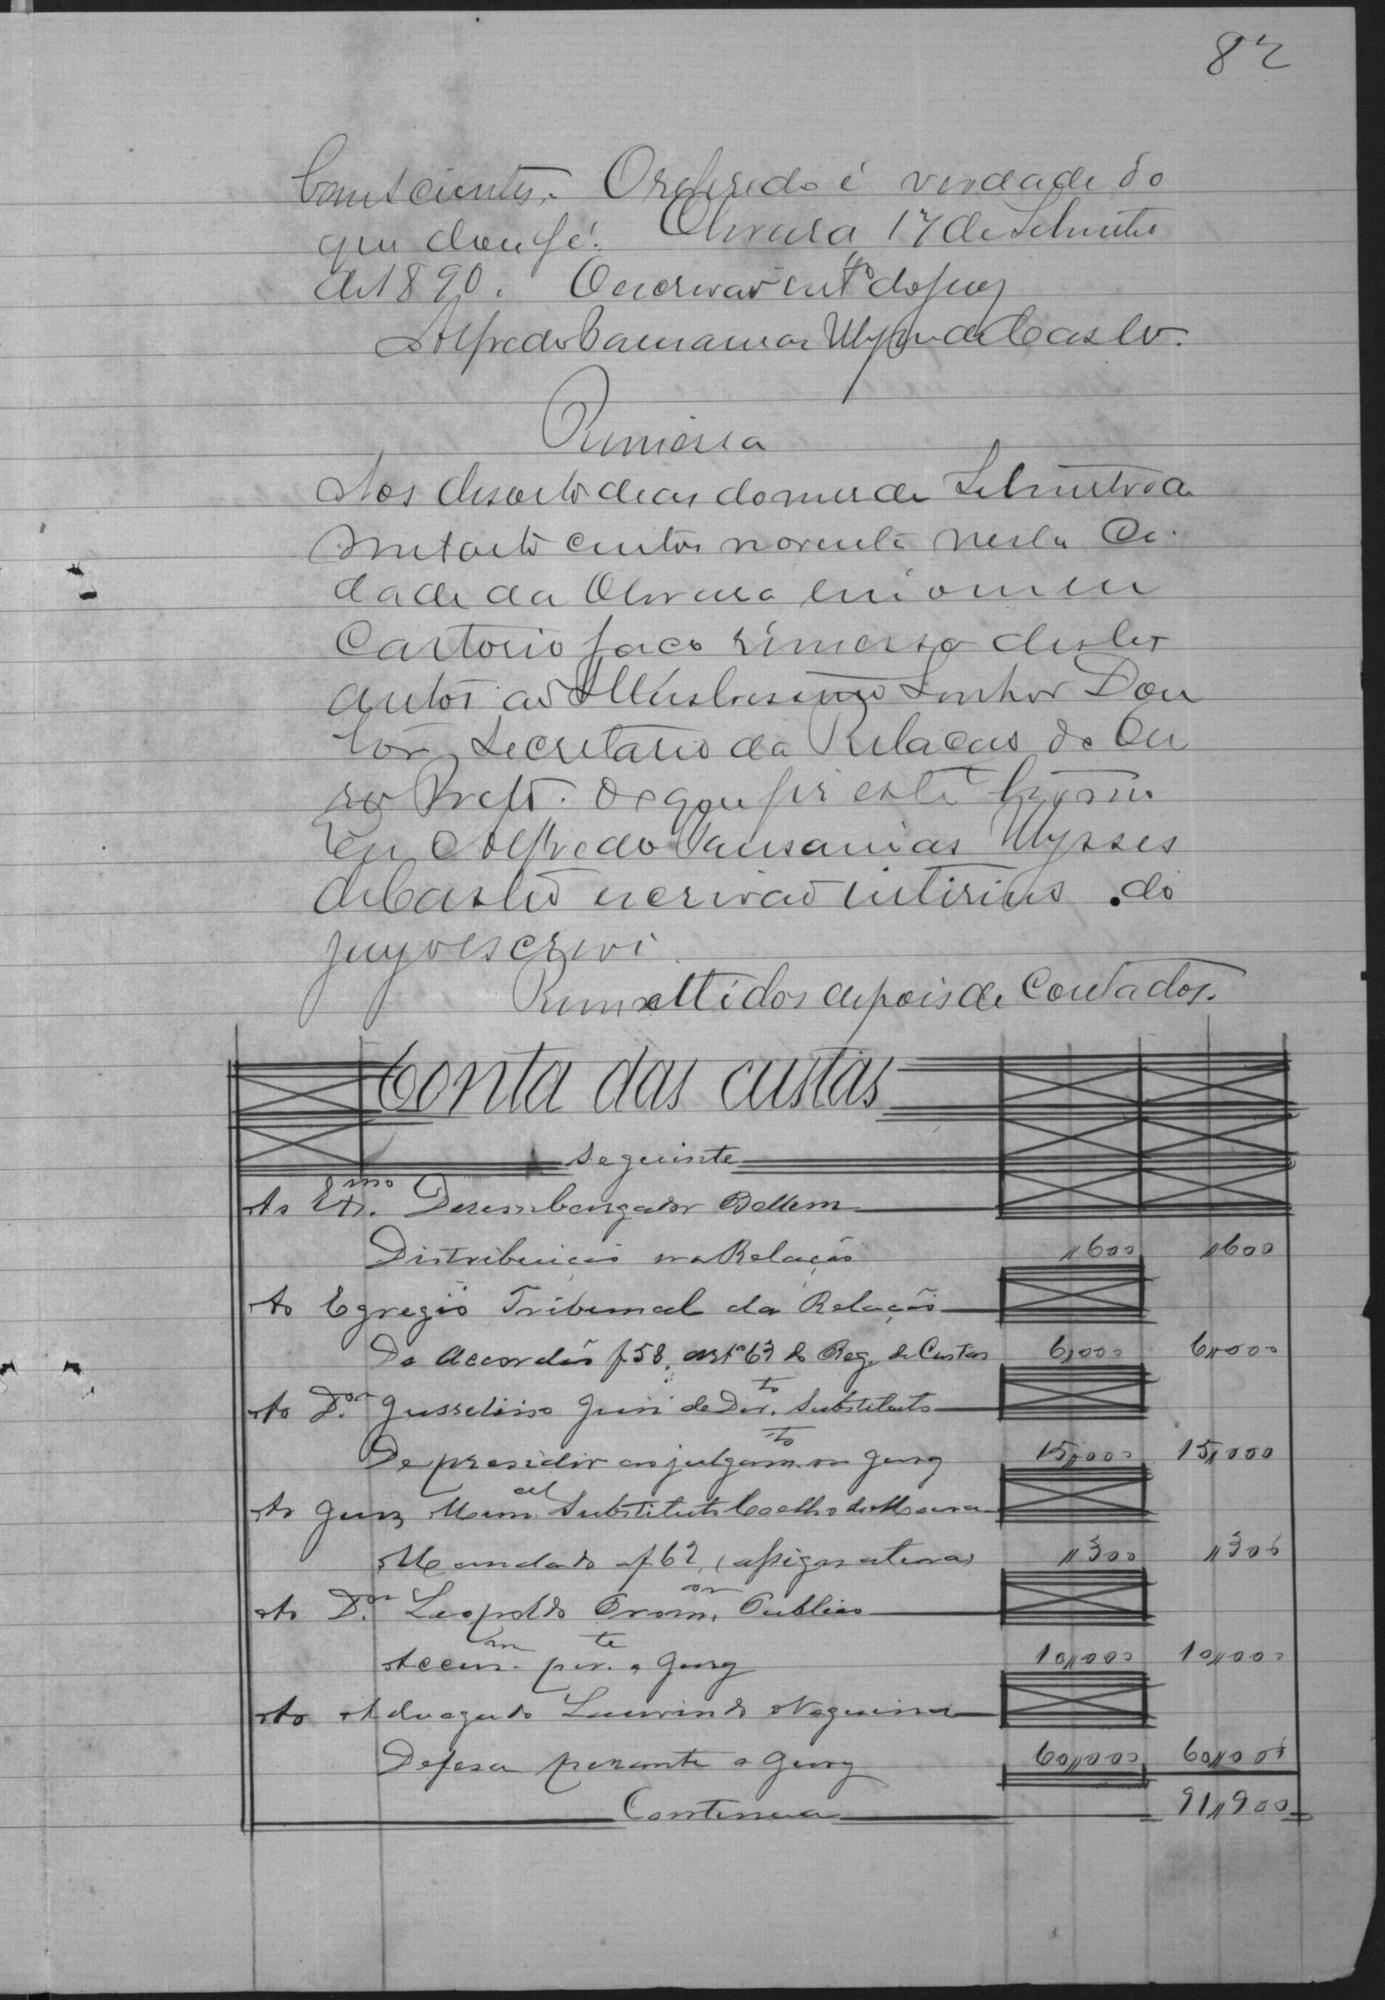 82
Conscientes. O referido é verdade do
que dou fé. Oliveira 17 de Setembro
de 1890. O escrivão intº do jury
Alfredo Pausanias Ulysses de Castro.
Remessa
Aos desoito dias do mes de Setembro de
mil oito centos noventa nesta Ci-
dade da Oliveira em o meu
Cartorio faço remessa destes
autos ao Illustrissimo Senhor Dou
tor Secretario da Relação do Ou
ro Preto. Do que fis este termo
Eu Alfredo Pausanias Ulysses
de Castro escrivão interino do
jury o escrevi.
Remettidos depois de Contados.
Conta das custas
Seguinte
Ao Exmo. Desembargador
Distribuição na Relação 〃600 〃600
Ao Egregio Tribunal da Relação
Do Accordão f 58, artº 63 do Reg. de Custas 6〃000 6〃000
Ao Dor. Jusselino Juiz de Dirto. Substituto
De presidir ao julgamto no Jury 15〃000 15〃000
Ao Juiz Munal Substituto Coelho de Moura
Mandado af 62, (assignatura) 〃300 〃300
Ao Dor. Leopoldo Promor. Publico
Accusm perte o Jury 10〃000 10〃000
Ao Advogado Laurindo Nogueira
Defesa perante o Jury 60〃000 60〃000
Continua 91〃900